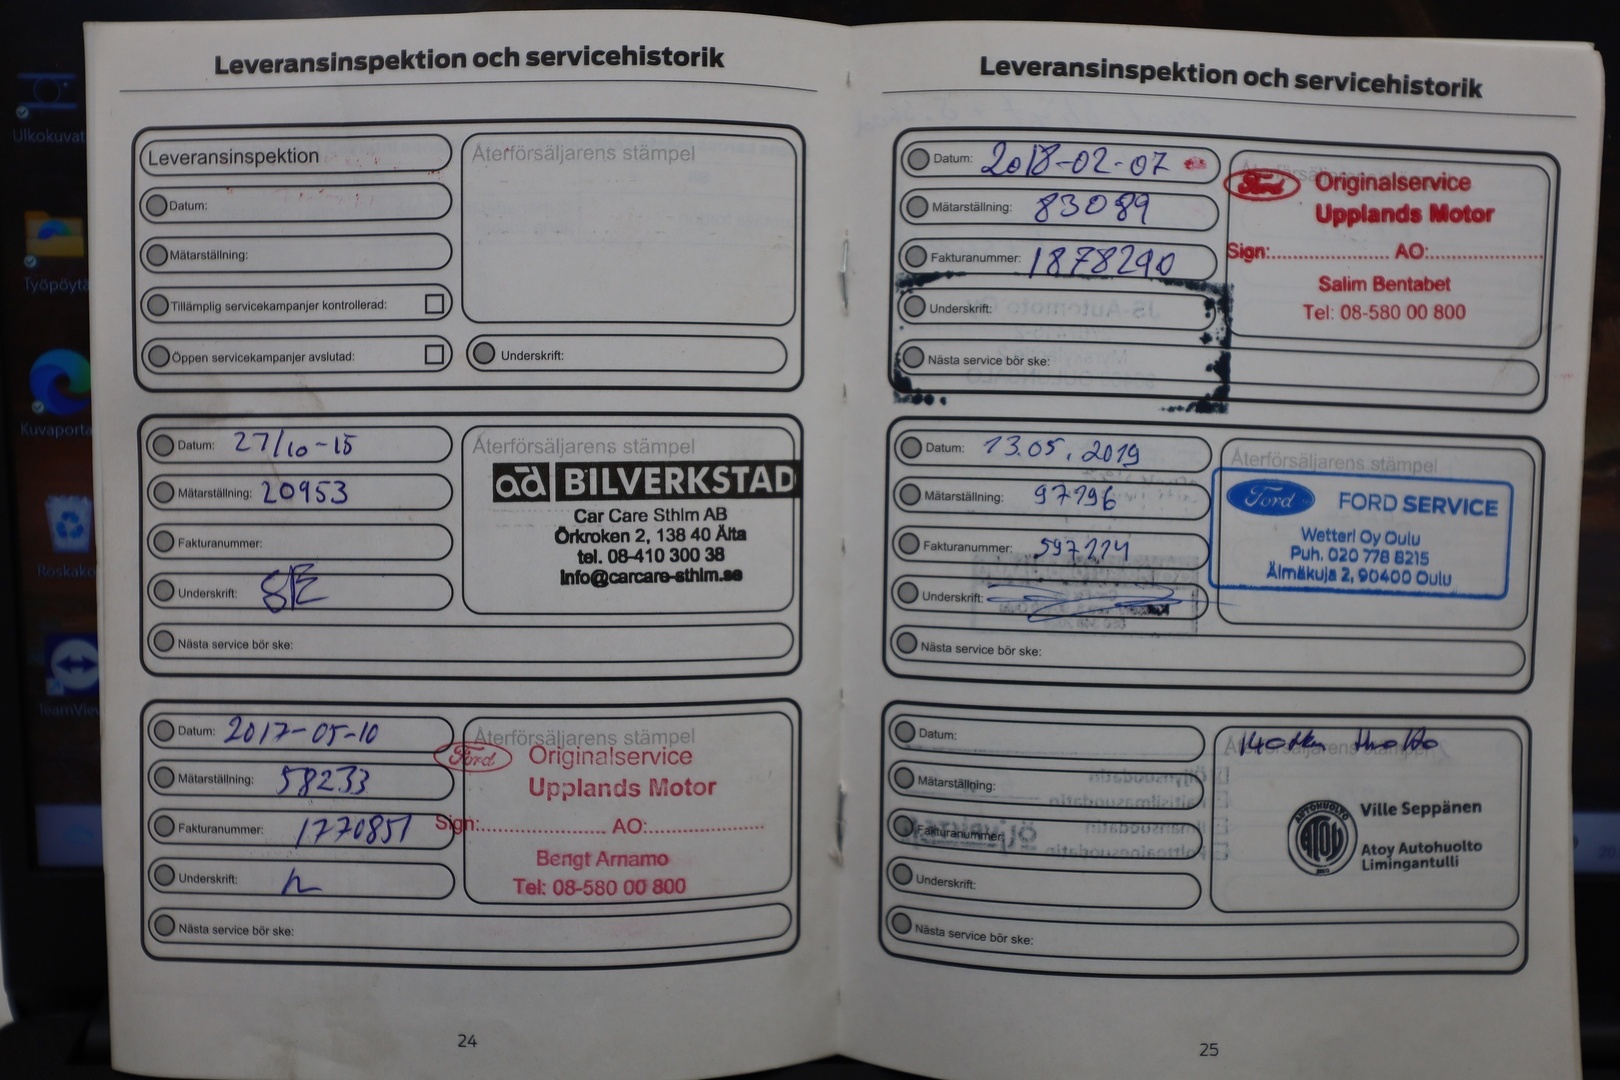 Leveransinspektion och servicehistorik
Leveransinspektion
Återförsäljarens stämpel
Datum:
Mätarställning:
Tillämplig servicekampanjer kontrollerad:
Öppen servicekampanjer avslutad:
Underskrift:
Datum: 27/10-15
Mätarställning: 20953
Fakturanummer:
Underskrift:
Nästa service bör ske:
Återförsäljarens stämpel
ad BILVERKSTAD
Car Care Sthlm AB
Örkroken 2, 138 40 Älta
tel. 08-410 300 38
info@carcare-sthlm.se
Datum: 2017-05-10
Mätarställning: 58233
Fakturanummer: 1770851
Underskrift:
Nästa service bör ske:
Återförsäljarens stämpel
Ford Originalservice
Upplands Motor
Sign:.................... AO:....................
Bengt Arnamo
Tel: 08-580 00 800
24
Leveransinspektion och servicehistorik
Datum: 2018-02-07
Mätarställning: 83089
Fakturanummer: 1878290
Underskrift:
Nästa service bör ske:
Ford Originalservice
Upplands Motor
Sign:.................... AO:....................
Salim Bentabet
Tel: 08-580 00 800
JS-Automoto Oy
Datum: 13.05.2019
Mätarställning: 97296
Fakturanummer: 597224
Underskrift:
Nästa service bör ske:
Återförsäljarens stämpel
Ford FORD SERVICE
Wetteri Oy Oulu
Puh. 020 778 8215
Älmäkuja 2, 90400 Oulu
Datum:
Mätarställning:
Fakturanummer:
Underskrift:
Nästa service bör ske:
Återförsäljarens stämpel
AUTOHUOLTO
ATOY
Ville Seppänen
Atoy Autohuolto
Limingantulli
25
Ulkokuvat
Työpöytä
Kuvaporta
Roskako
TeamView